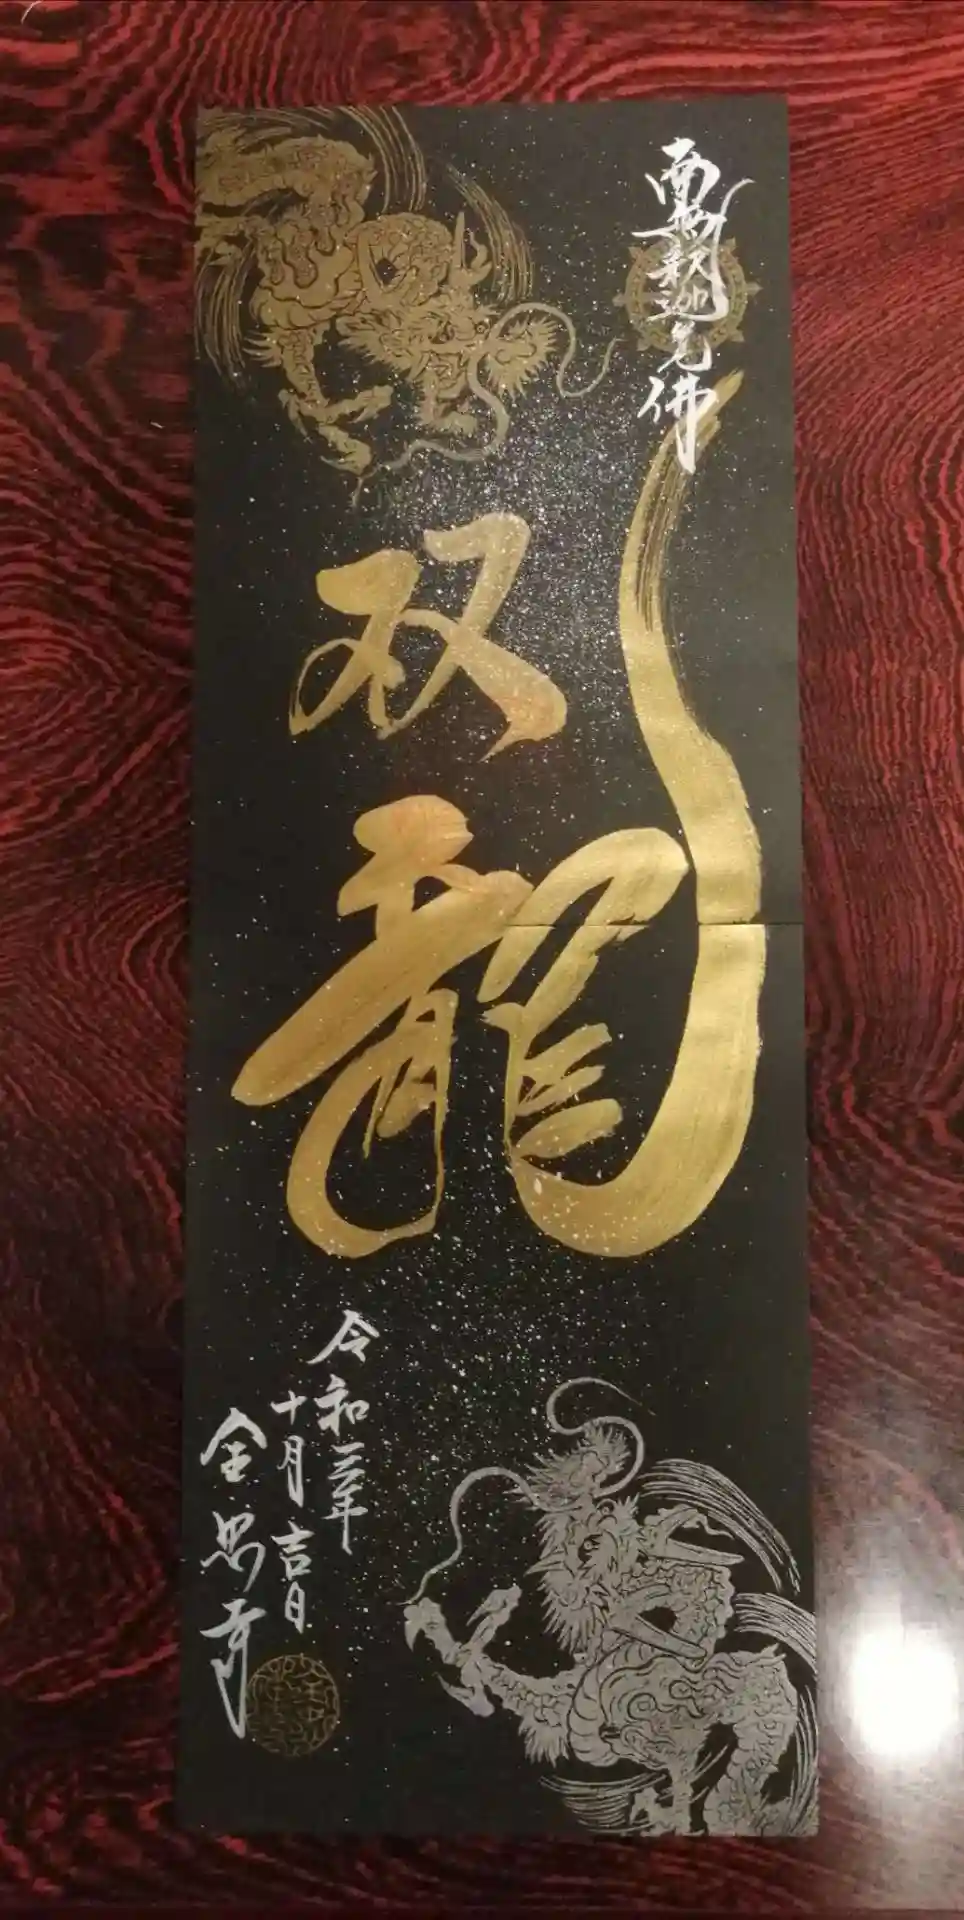 南無釈迦牟尼佛
双龍
令和二年
十月吉日
全忠寺